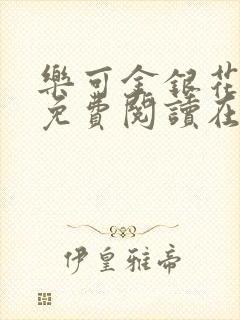 樂可金銀花
免費閱讀在
伊皇雅帝